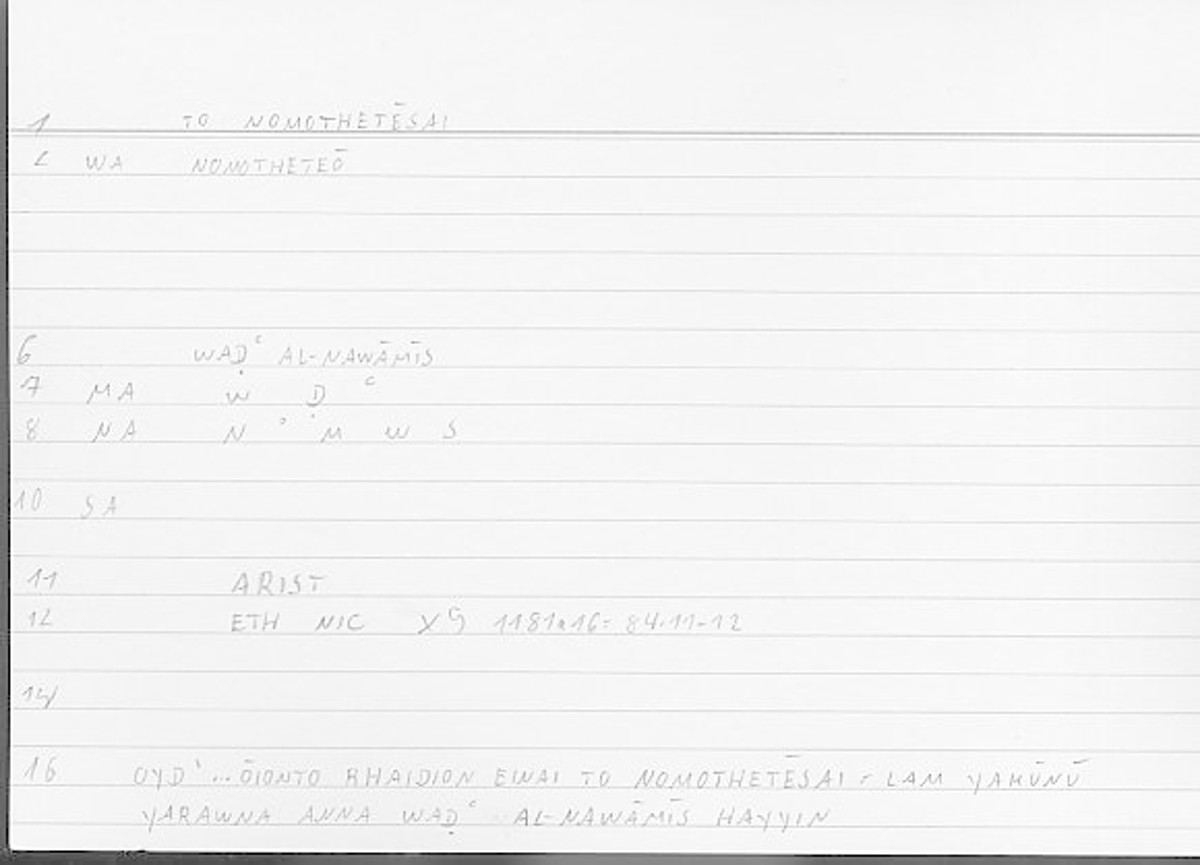 1 TO NOMOTHETĒSAI
2 WA NOMOTHETEŌ
6 WAḌʿ AL-NAWĀMĪS
7 MA W Ḍ ʿ
8 NA N ° M W S
10 SA
11 ARIST
12 ETH NIC X9 1181a16= 84.11-12
14
16 OYD' ... ŌIONTO RHAIDION EINAI TO NOMOTHETĒSAI = LAM YAKŪNŪ
YARAWNA ANNA WAḌʿ AL-NAWĀMĪS HAYYIN